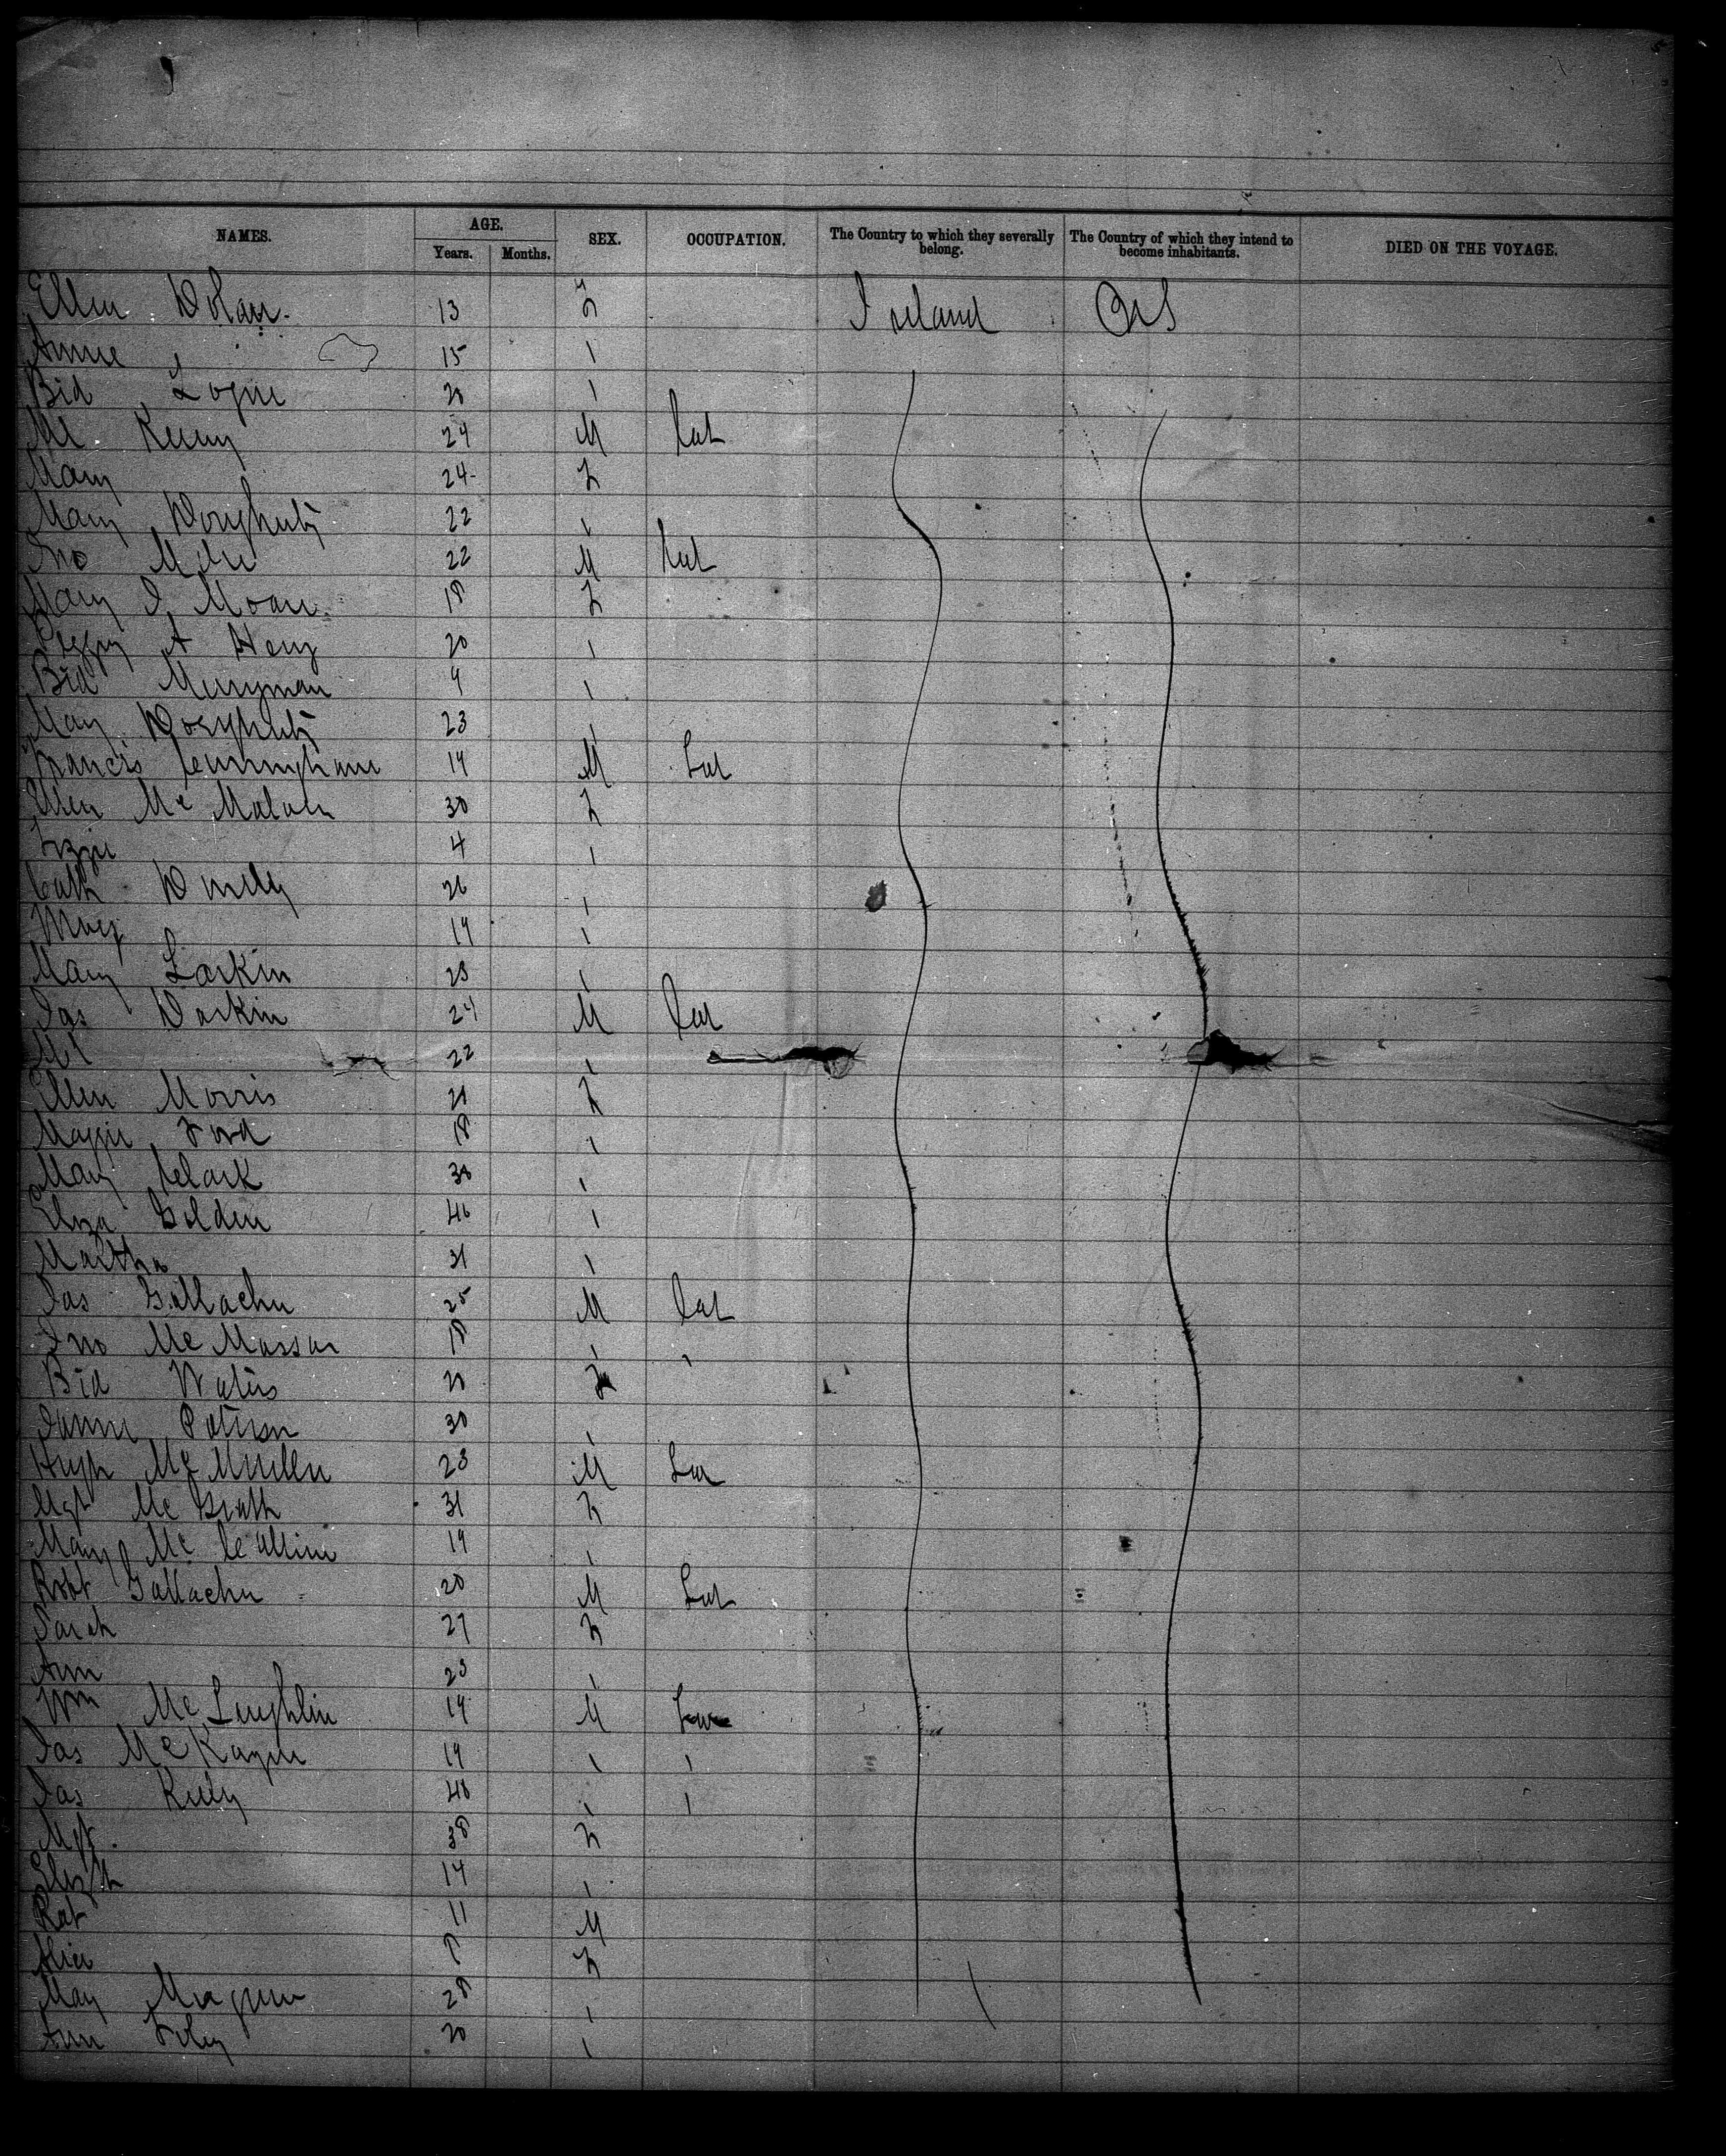 NAMES. AGE. SEX. OCCUPATION. The Country to which they severally belong. The Country of which they intend to become inhabitants. DIED ON THE VOYAGE.
Years. Months.
Ellen Dolan. 13 F Ireland US
Annie 15 \
Bid Logue 20 \
Ml Kenny 24 M Lab
Mary 24 F
Mary Dougherty 22 \
Jno 22 M Lab
Mary J Moan 18 F
Peggy A Heng 20 \
Bid Merryman 9 \
May Dougherty 23 \
Francis Cunningham 19 M Lab
Ellen Mc Malon 30 F
Lizzie 4 \
Cath Donelly 26 \
Mary 19 \
Mary Larkin 23 \
Jas Darkin 24 M Lab
Ml 22 \
Ellen Morris 21 F
Maggie Ford 18 \
Mary Clark 30 \
Eliza Golden 40 \
Martha 31 \
Jas Gallacher 25 M Lab
Jno Mc 18 \ \
Bid Waters 20 F
Patterson 30 \
Hugh Mc Mullen 23 M Lab
Mgt Mc Grath 31 F
Mary Mc Callion 19 \
Robt Gallacher 20 M Lab
Sarah 27 F
Ann 23 \
Wm Mc Laughlin 19 M Lab
Jas Mc Kague 19 \ \
Jas Reily 40 \ \
Mgt. 38 F
Elizth 14 \
Pat 11 M
Alice 8 F
May Maguire 28 \
Ann Foley 20 \